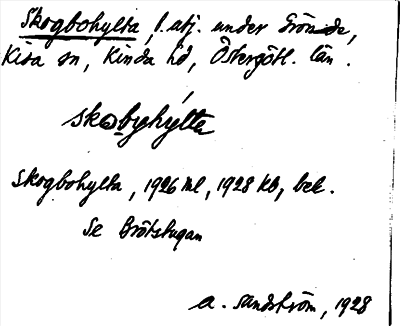 Skogbohylta, l. utj. under Grönede,
Kisa sn, Kinda hd, Östergötl. län.
skɷbyhy̓lta
Skogbohylta, 1926 ml, 1928 kb, bet.
Se Brötstugan
A. Sandström, 1928